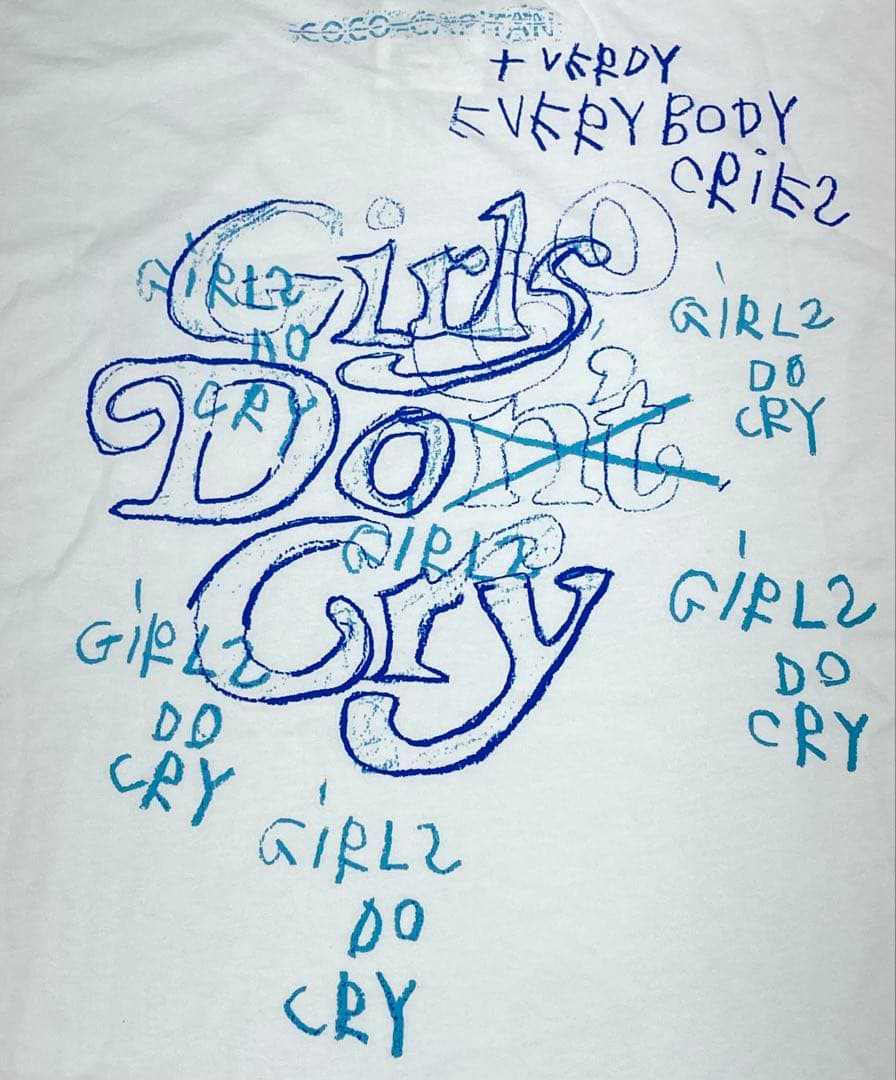 COCO CAPITAN
+ VERDY
EVERYBODY
CRiE2
Girls
Don't
Cry
GiRL2
DO
CRY
GiRL2
DO
CRY
GiRL2
GiRL2
DO
CRY
GiRL2
DO
CRY
GiRL2
DO
CRY